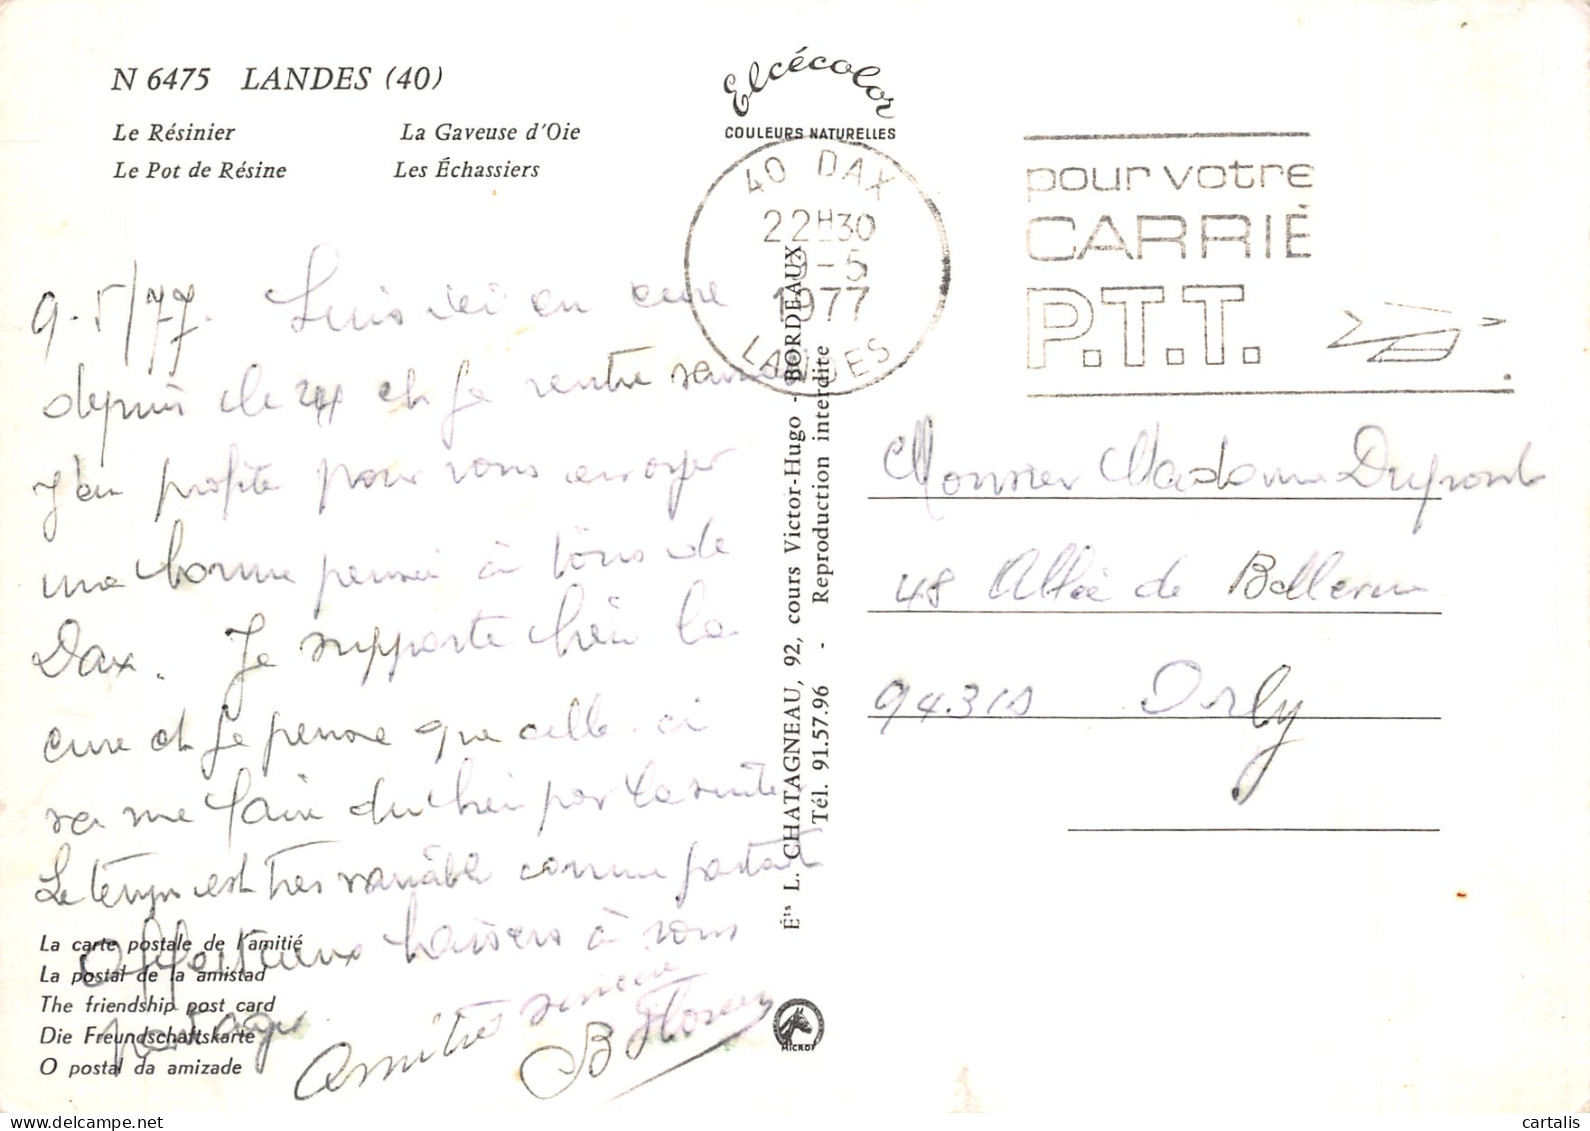 N 6475 LANDES (40)
Le Résinier La Gaveuse d'Oie
Le Pot de Résine Les Échassiers
Elcécolor
COULEURS NATURELLES
40 DAX
22H30
9-5
1977
LANDES
pour votre
CARRIÉ
P.T.T.
9.5/77. Suis ici en cure
depuis le 24 et je rentre
J'en profite pour vous envoyer
une bonne pensée à tous de
Dax. Je supporte bien la
cure et je pense que celle-ci
va me faire du bien par la suite
Le temps est très variable comme partout
Affectueux baisers à vous
partager
Amitiés sincère
B
La carte postale de l'amitié
La postal de la amistad
The friendship post card
Die Freundschaftskarte
O postal da amizade
Éts L. CHATAGNEAU, 92, cours Victor-Hugo - BORDEAUX
Tél. 91.57.96 - Reproduction interdite
MICRO
Monsieur Madame Dupont
48 Allée de
94310 Orly
cartalis.com
cartalis